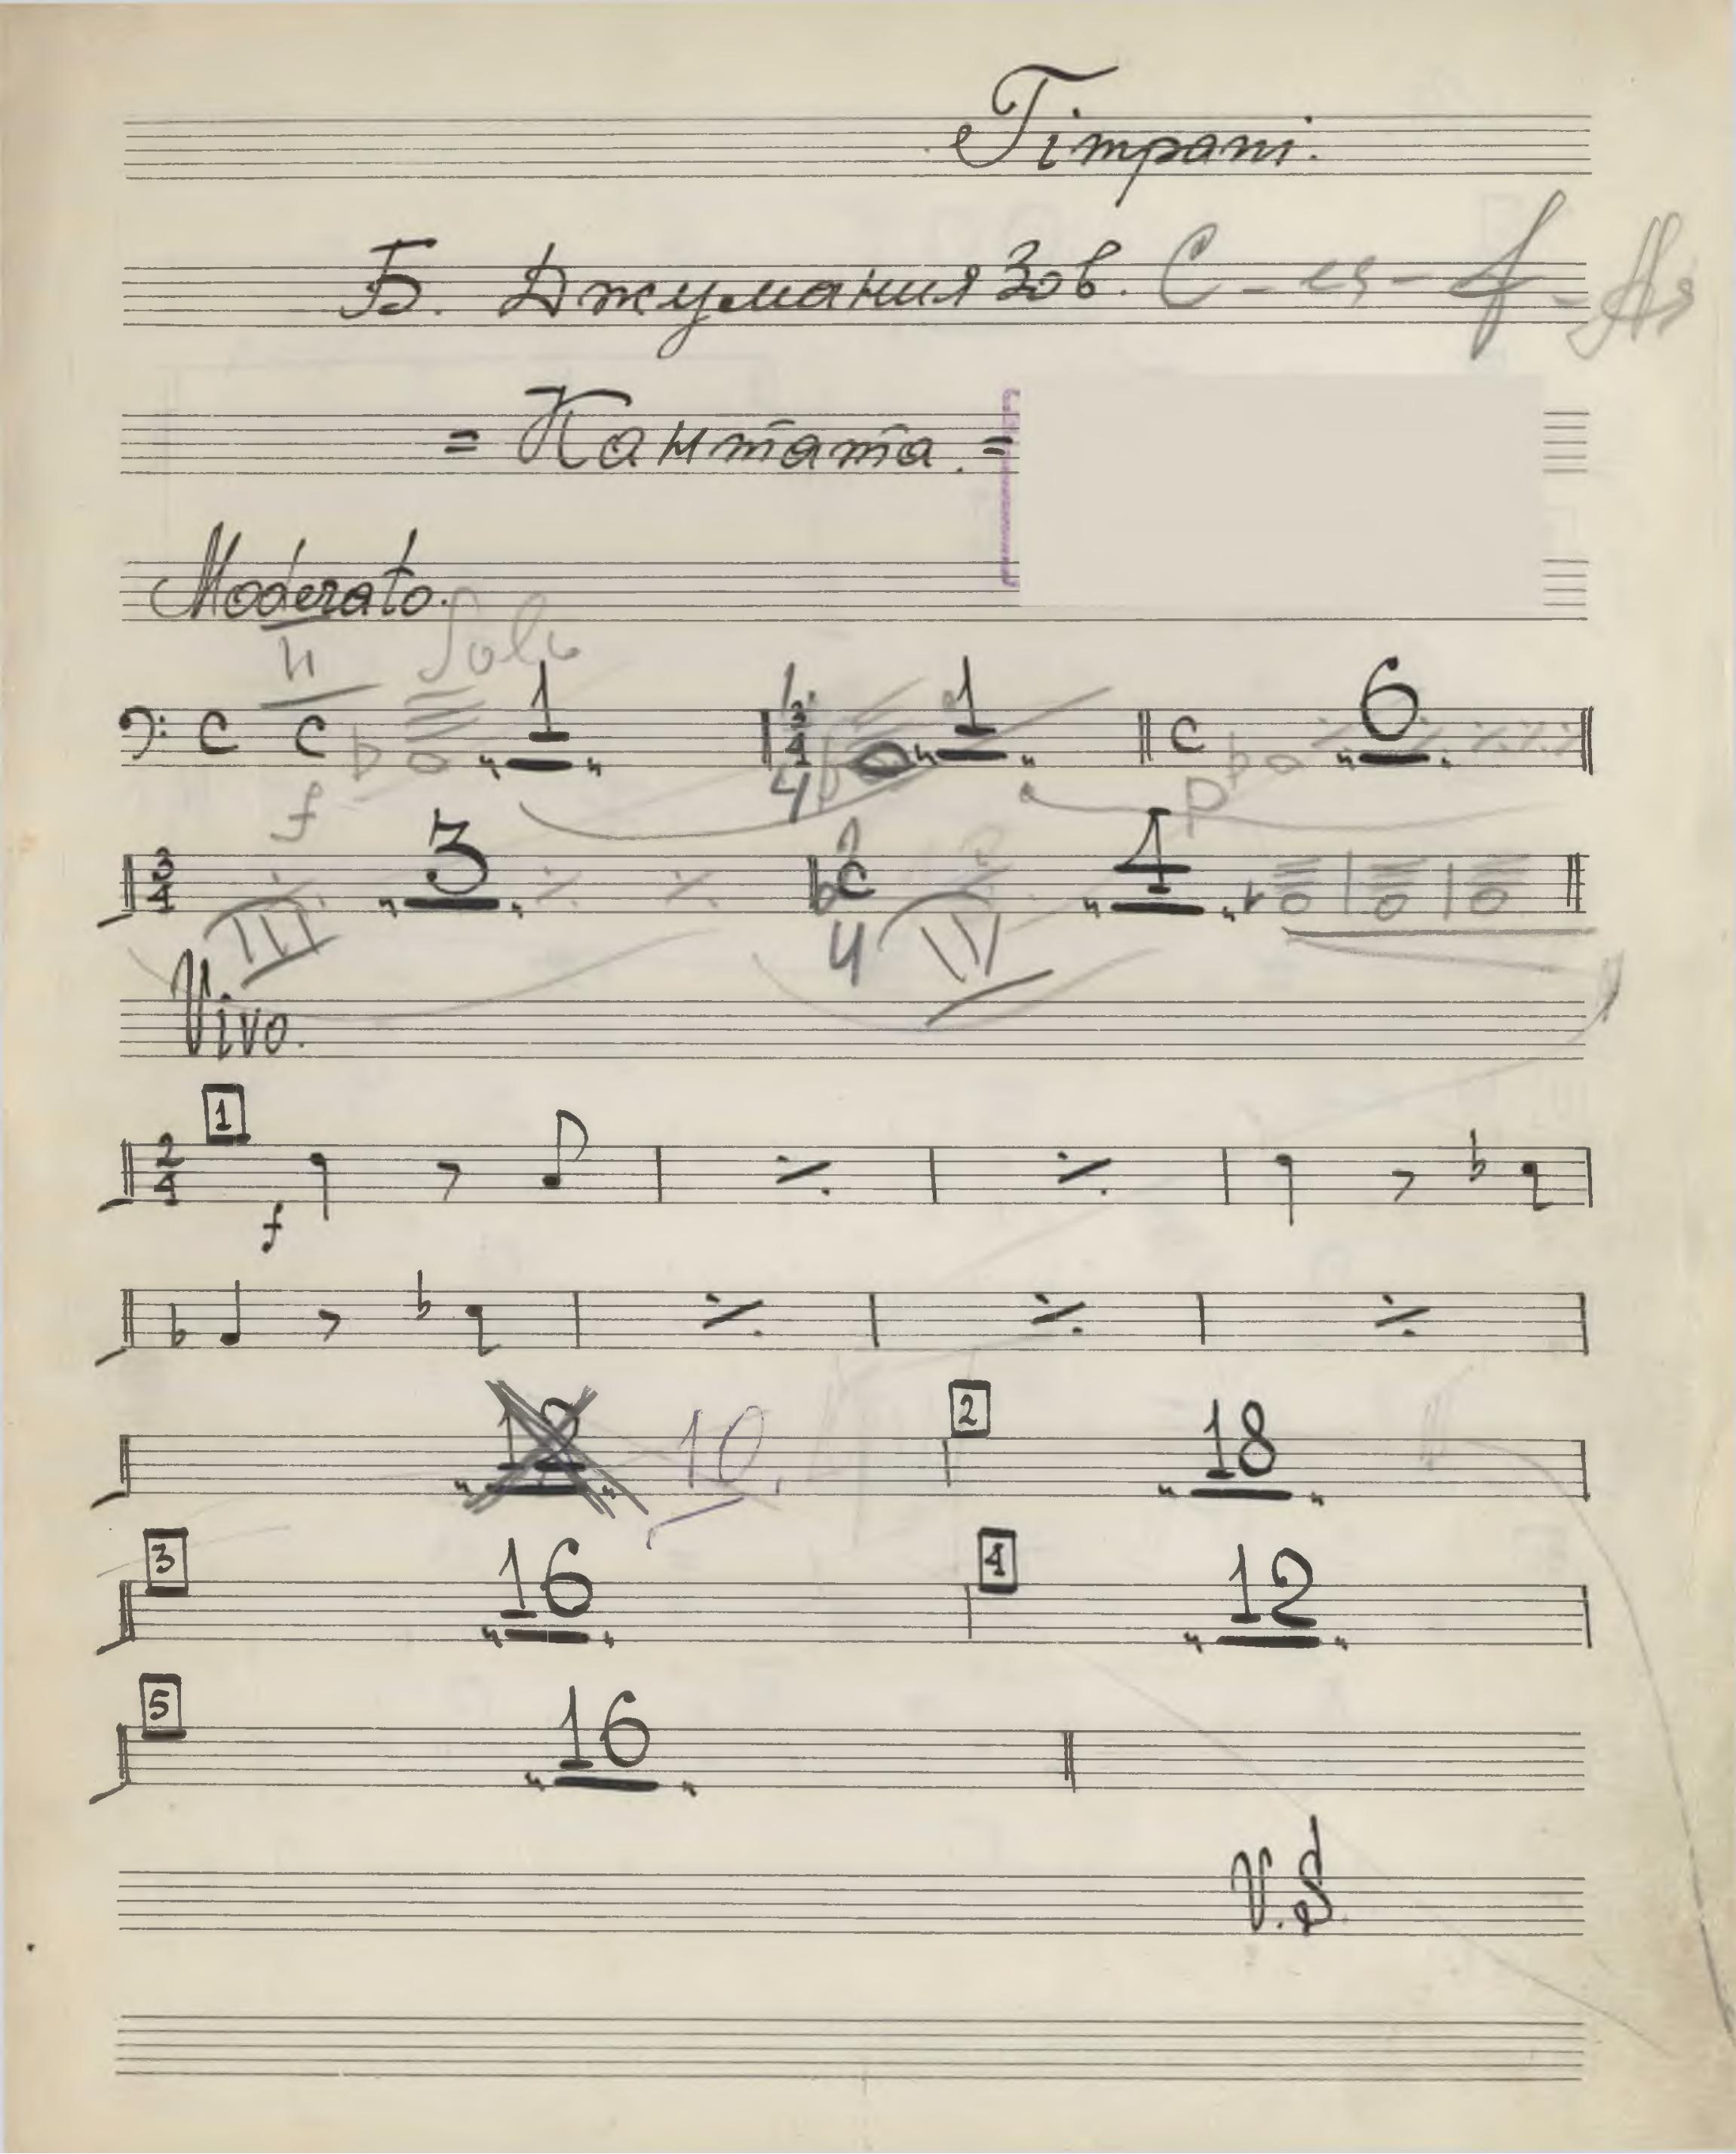 Timpani.
Б. Джуманиязов. C - es - f - As
= Кантата. =
Moderato.
Solo
1 1 6
f p
3 4
III 4 IV
Vivo.
1
f
10 2 18
3 16 4 12
5 16
V.S.